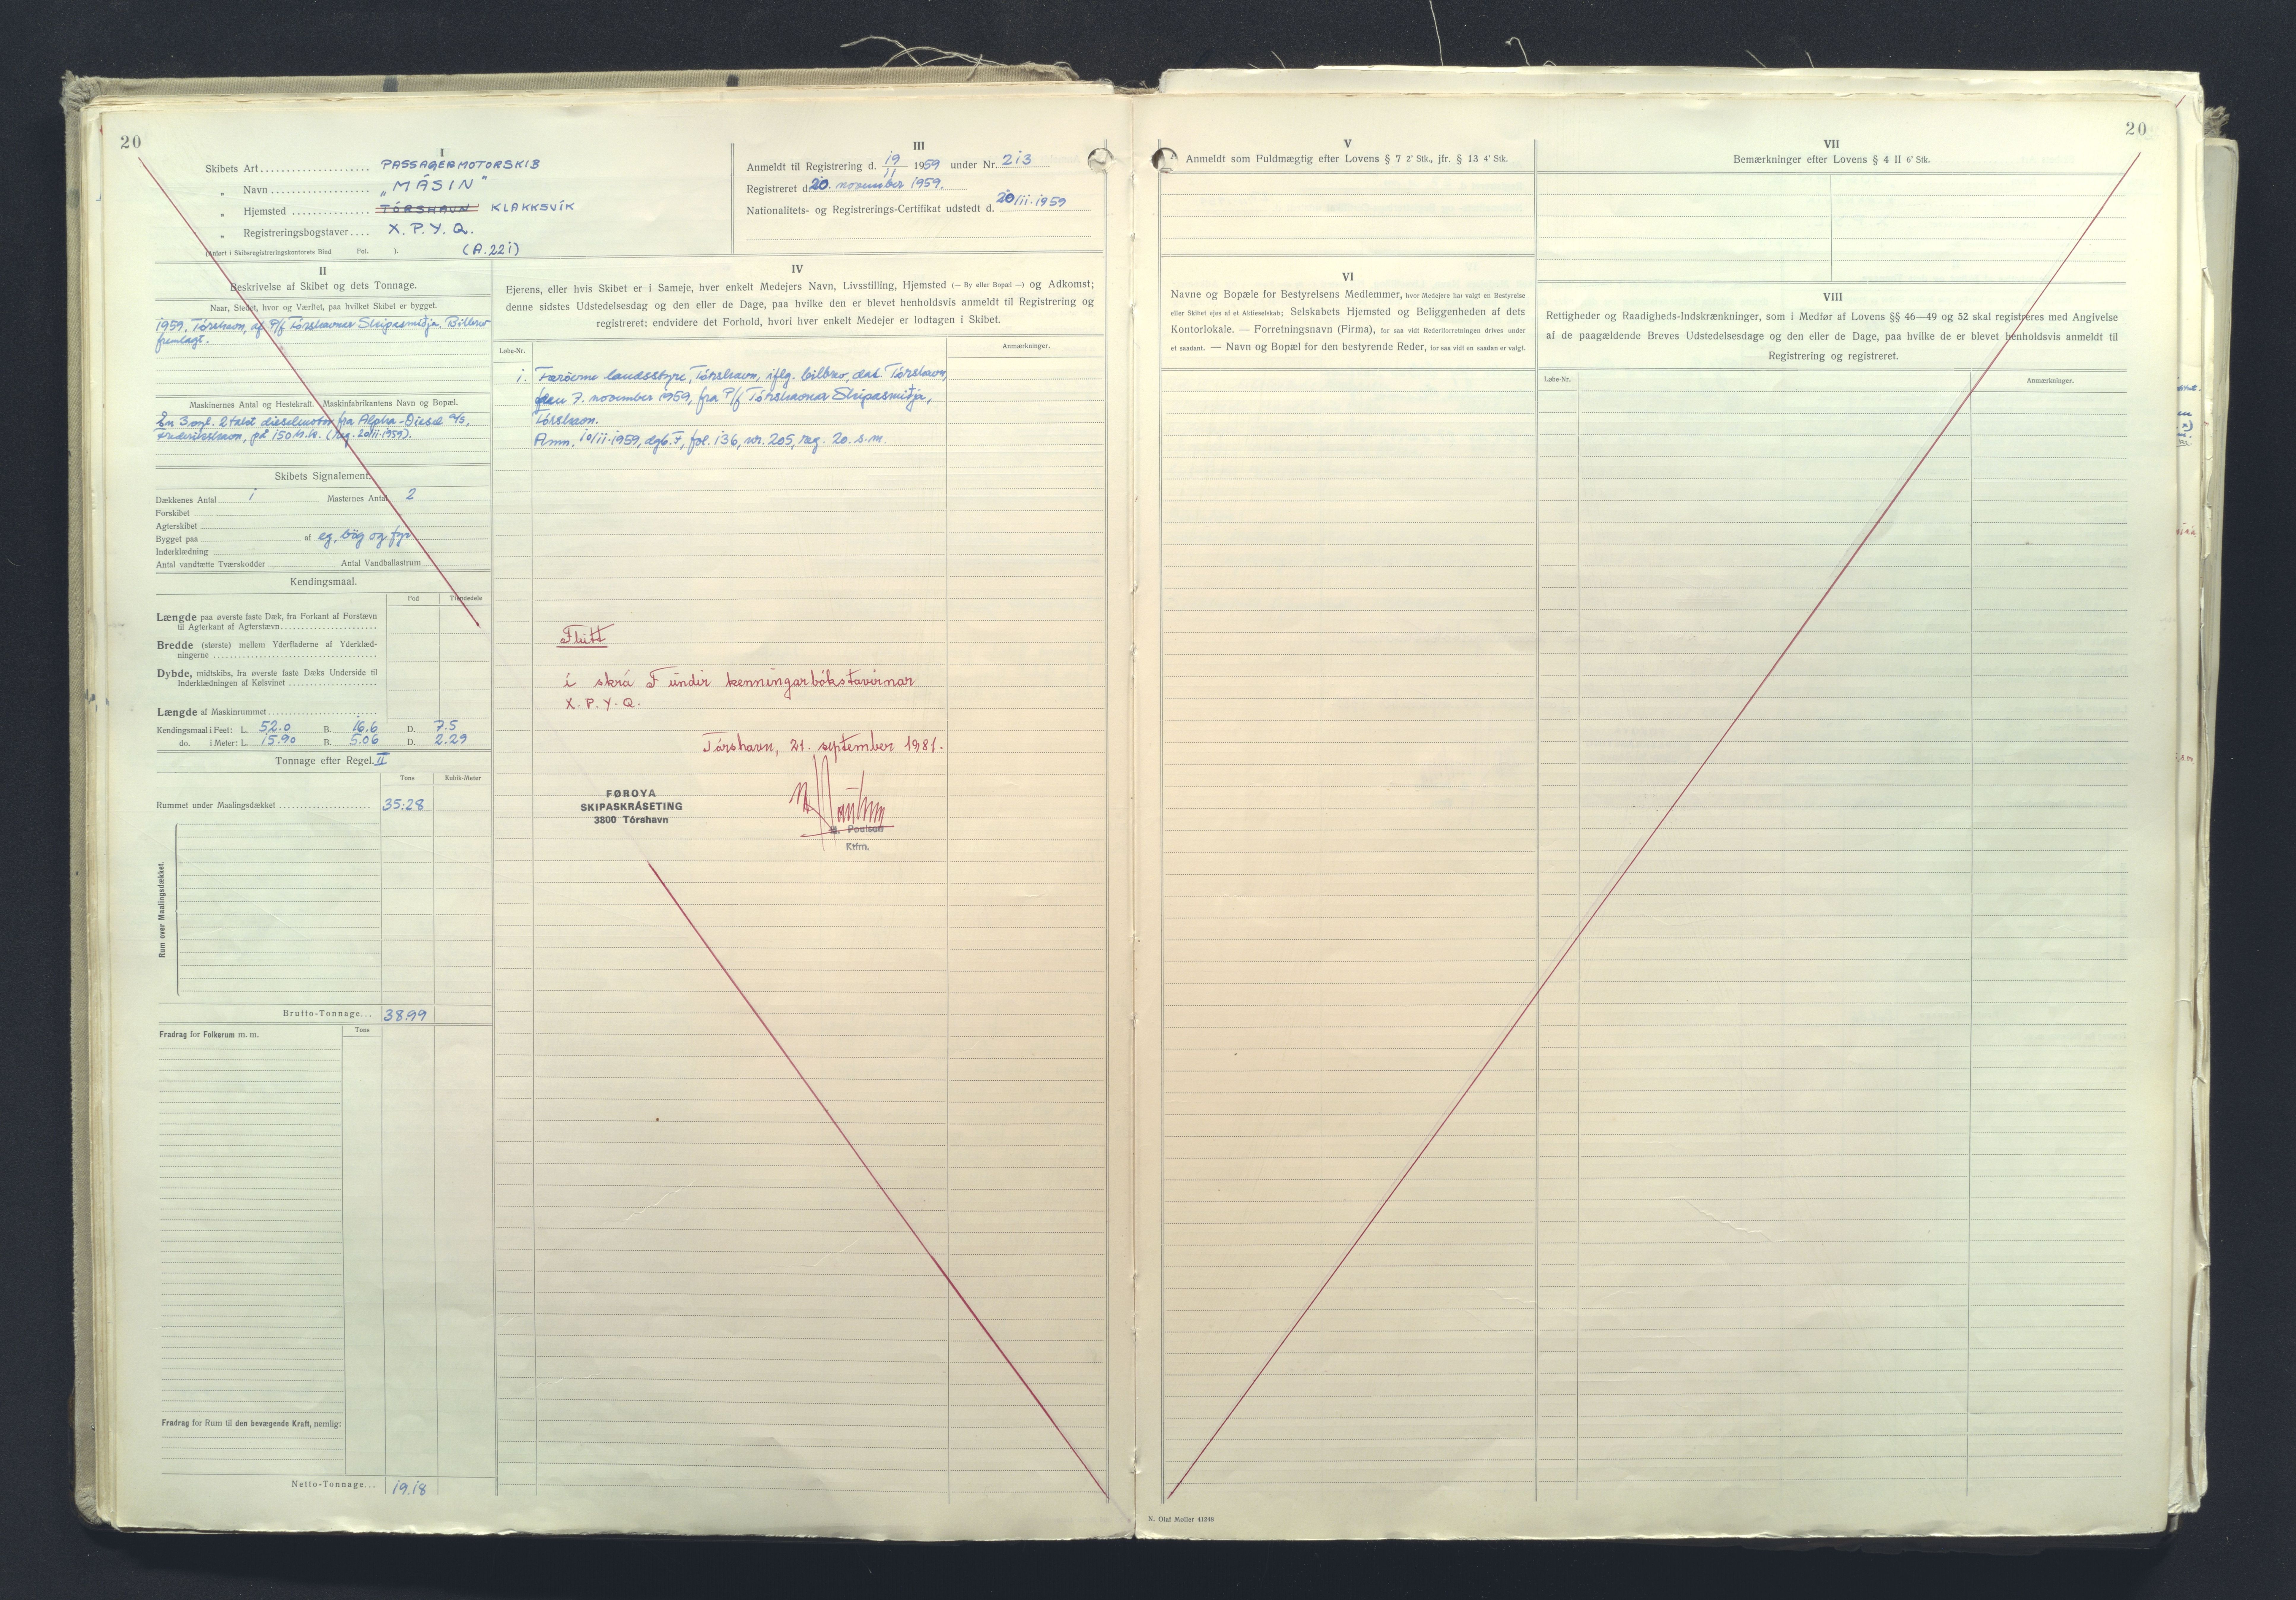 20
I
Skibets Art PASSAGERMOTORSKIB
" Navn "MÁSIN"
" Hjemsted TÓRSHAVN KLAKKSVÍK
" Registreringsbogstaver X.P.Y.Q.
(Anført i Skibsregistreringskontorets Bind Fol. ). (A.221)
III
Anmeldt til Registrering d. 19/11 1959 under Nr. 213
Registreret d. 20. november 1959.
Nationalitets- og Registrerings-Certifikat udstedt d. 20/11.1959
II
Beskrivelse af Skibet og dets Tonnage.
Naar, Stedet, hvor og Værftet, paa hvilket Skibet er bygget.
1959. Tórshavn, af P/f Tórshavnar Skipasmiðja. Bilbrev
fremlagt.
Maskinernes Antal og Hestekraft. Maskinfabrikantens Navn og Bopæl.
En 3 cyl. 2 takt dieselmotor fra Alpha-Diesel A/S,
Frederikshavn, på 150 h.k. (reg. 20/11.1959).
Skibets Signalement.
Dækkenes Antal 1 Masternes Antal 2
Forskibet
Agterskibet
Bygget paa af eg, bøg og fyr
Inderklædning
Antal vandtætte Tværskodder Antal Vandballastrum
Kendingsmaal.
Fod Tiendedele
Længde paa øverste faste Dæk, fra Forkant af Forstævn
til Agterkant af Agterstævn
Bredde (største) mellem Yderfladerne af Yderklæd-
ningerne
Dybde, midtskibs, fra øverste faste Dæks Underside til
Inderklædningen af Kølsvinet
Længde af Maskinrummet
Kendingsmaal i Feet: L. 52.0 B. 16.6 D. 7.5
do. i Meter: L. 15.90 B. 5.06 D. 2.29
Tonnage efter Regel II
Tons Kubik-Meter
Rummet under Maalingsdækket 35.28
Rum over Maalingsdækket.
Brutto-Tonnage... 38.99
Fradrag for Folkerum m. m. Tons
Fradrag for Rum til den bevægende Kraft, nemlig:
Netto-Tonnage... 19.18
IV
Ejerens, eller hvis Skibet er i Sameje, hver enkelt Medejers Navn, Livsstilling, Hjemsted (— By eller Bopæl —) og Adkomst;
denne sidstes Udstedelsesdag og den eller de Dage, paa hvilke den er blevet henholdsvis anmeldt til Registrering og
registreret; endvidere det Forhold, hvori hver enkelt Medejer er lodtagen i Skibet.
Løbe-Nr. Anmærkninger.
1. Færøerne landsstyre, Tórshavn, iflg. bilbrev, dat. Tórshavn,
den 7. november 1959, fra P/f Tórshavnar Skipasmiðja,
Tórshavn.
Anm. 10/11.1959, dgb. F, fol. 136, nr. 205, reg. 20. s.m.
Flutt
í skrá F undir kenningarbókstavirnar
X.P.Y.Q.
Tórshavn, 21. september 1981.
FØROYA
SKIPASKRÁSETING
3800 Tórshavn
Poulsen
Kfm.
20
V
Anmeldt som Fuldmægtig efter Lovens § 7 2' Stk., jfr. § 13 4' Stk.
VI
Navne og Bopæle for Bestyrelsens Medlemmer, hvor Medejere har valgt en Bestyrelse
eller Skibet ejes af et Aktieselskab; Selskabets Hjemsted og Beliggenheden af dets
Kontorlokale. — Forretningsnavn (Firma), for saa vidt Rederiforretningen drives under
et saadant. — Navn og Bopæl for den bestyrende Reder, for saa vidt en saadan er valgt.
VII
Bemærkninger efter Lovens § 4 II 6' Stk.
VIII
Rettigheder og Raadigheds-Indskrænkninger, som i Medfør af Lovens §§ 46—49 og 52 skal registreres med Angivelse
af de paagældende Breves Udstedelsesdage og den eller de Dage, paa hvilke de er blevet henholdsvis anmeldt til
Registrering og registreret.
Løbe-Nr. Anmærkninger.
N. Olaf Møller 41248